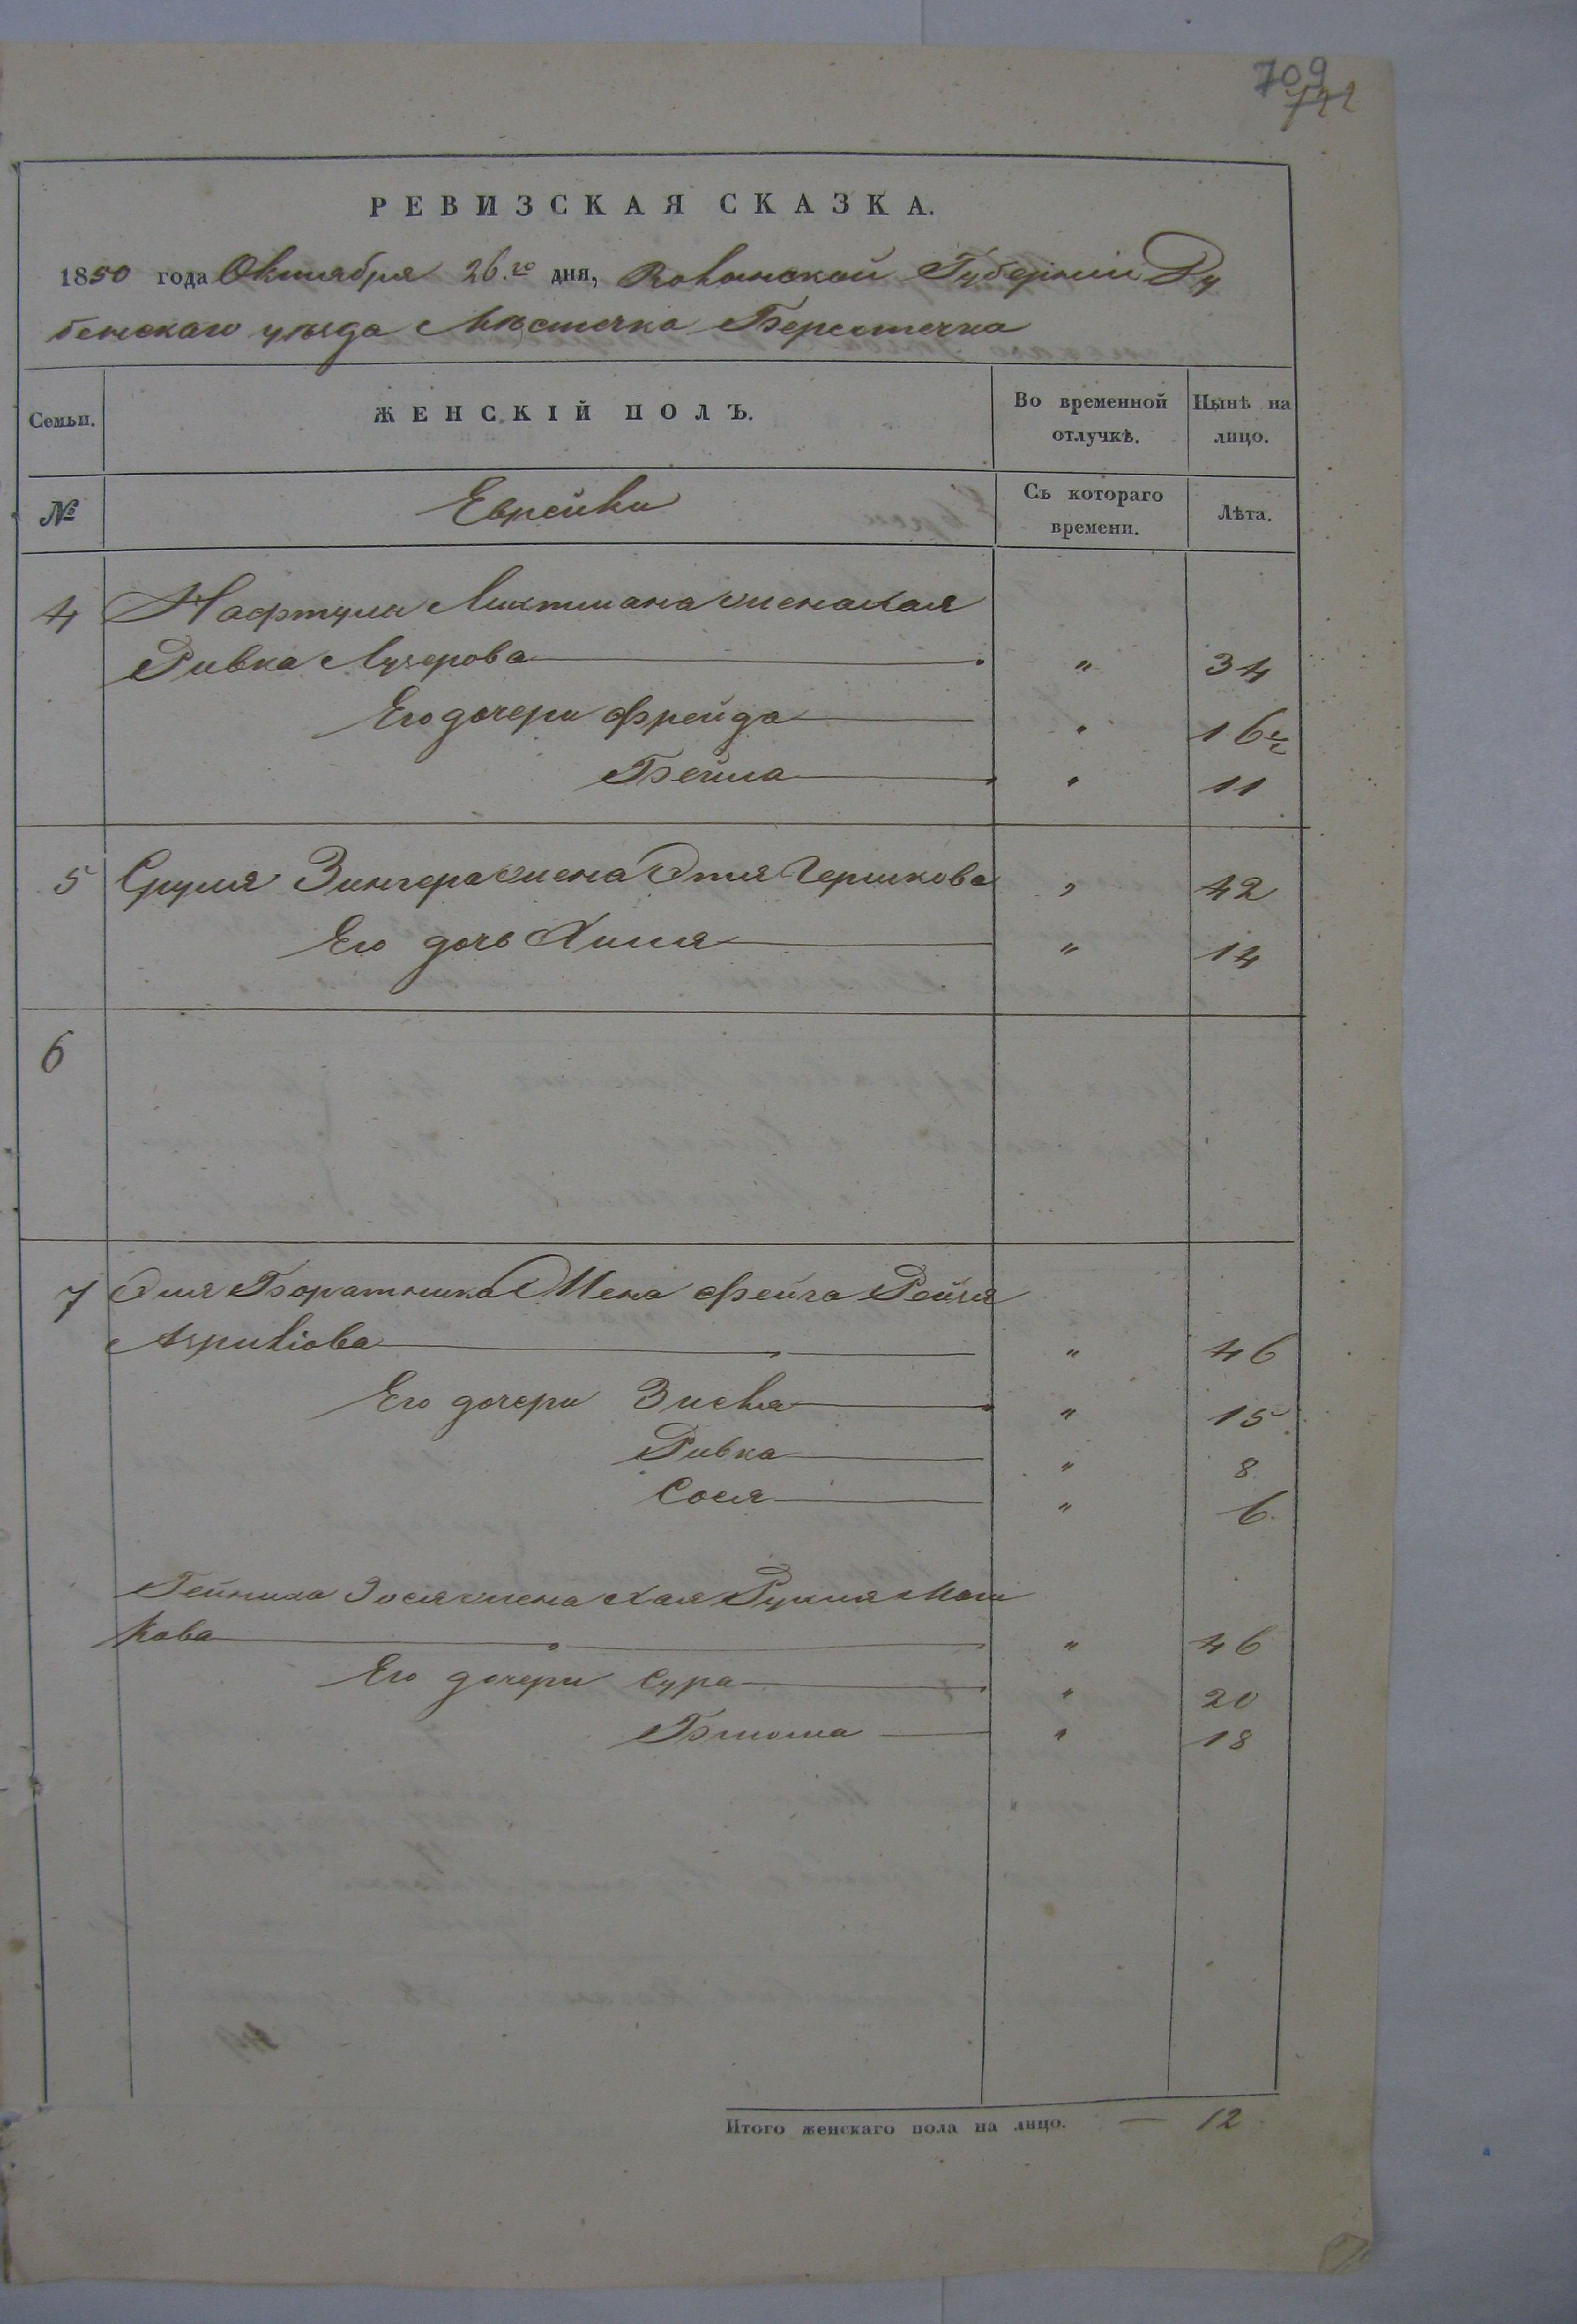 709
742
РЕВИЗСКАЯ СКАЗКА.
1850 года Октября 26.го дня, Волынской Губерніи Ду
бенскаго уѣзда Мѣстечка Берестечка
Семьи. ЖЕНСКІЙ ПОЛЪ. Во временной отлучкѣ. Нынѣ на лицо.
№ Еврейки Съ котораго времени. Лѣта.
4 Нафтули Лихтмана жена Хая
Ривка Лузерова " 34
Его дочери Фрейда " 16½
Бейла " 11
5 Сруля Зингера жена Этя Гершкова " 42
Его дочь Химя " 14
6
7 Эля Боратника Жена Фейга Рейзя
Азриліова " 46
Его дочери Зисля " 15
Ривка " 8
Сося " 6.
жена Хая Рухля Мош
кова " 46
Его дочери Сура " 20
" 18
Итого женскаго пола на лицо. — 12